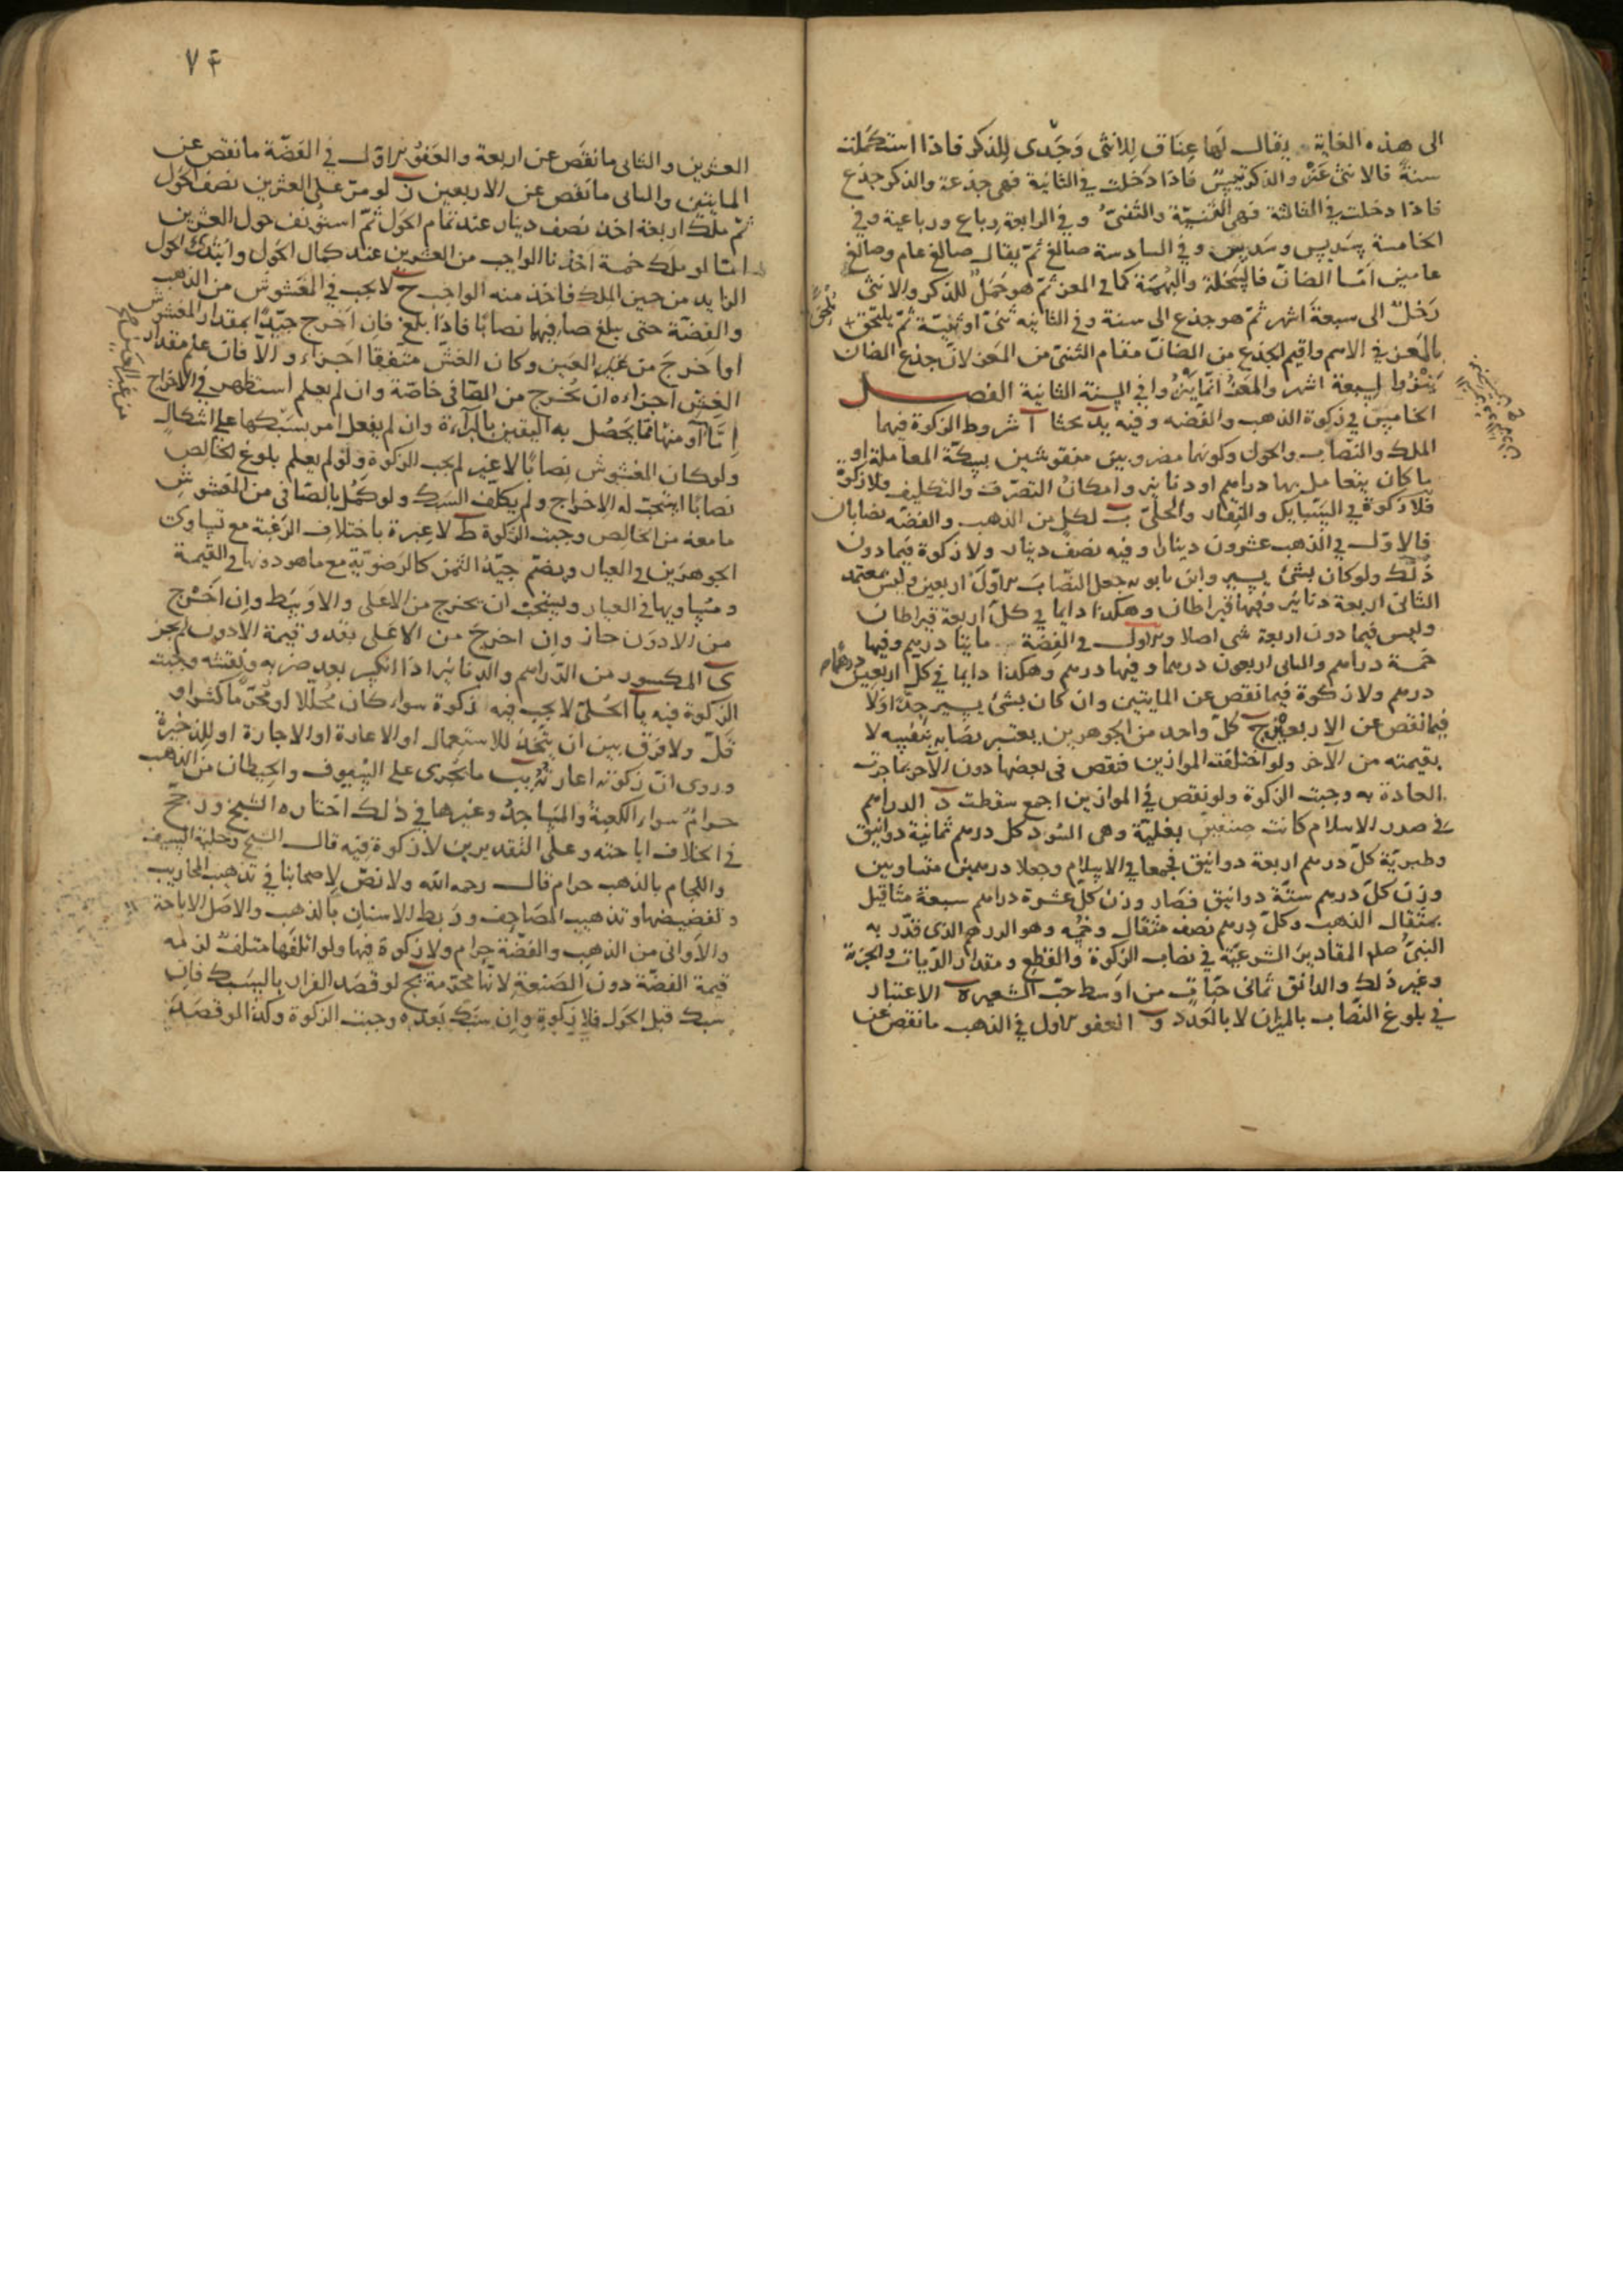 الى هذه الغاية يقال لها عناق للانثى وجدى للذكر فاذا استكملت
سنة فالانثى عنز والذكر تيس فاذا دخلت في الثانية فهى جذعة والذكر جذع
فاذا دخلت في الثالثة فهى الثنيّة والثنىّ وفي الرابعة رباع ورباعية وفي
الخامسة سديس وسديس وفي السادسة صالغ ثمّ يقال صالغ عام وصالغ
عامين امّا الضان فالسخلة والبهمة كما في المعز ثمّ هو حمل للذكر والانثى
رخل الى سبعة اشهر ثمّ هو جذع الى سنة وفي الثانيه ثنىّ او ثنيّة ثمّ يلتحق
بالمعز في الاسم واقيم الجذع من الضانّ مقام الثنىّ من المعز لانّ جذع الضان
ينزوا لسبعة اشهر والمعز انّما ينزوا في السنة الثانية الفصل
الخامس في زكوة الذهب والفضه وفيه يد بحثا ا شروط الزكوة فيهما
الملك والنّصاب والحول وكونها مضروبين منقوشين بسكّة المعاملة او
ما كان يتعامل بها دراهم او دنانير وامكان التصرّف والتكليف فلا زكوة
فلا زكوة في السّبايك والنّقار والحلىّ ب لكل من الذهب والفضّه نصابان
فالاوّل في الذهب عشرون دينارا وفيه نصف دينار ولا زكوة فيما دون
ذلك ولو كان بشئ يسير وابن بابويه جعل النّصاب الاوّل اربعين وليس بمعتمد
الثانى اربعة دنانير وفيها قيراطان وهكذا دايما في كلّ اربعة قيراطان
وليس فيما دون اربعة شى اصلا والاول في الفضة مايتا درهم وفيها
خمسة دراهم والثانى اربعون درهما وفيها درهم وهكذا دايما في كلّ اربعين درهما
درهم ولا زكوة فيما نقص عن المايتين وان كان بشئ يسير جدّا ولا
فيما نقص عن الاربعين ج كلّ واحد من الجوهرين يعتبر نصابه بنفسه لا
بقيمته من الآخر ولو اختلفت الموازين فنقص في بعضها دون الآخر بما جرت
العادة به وجبت الزكوة ولو نقص في الموازين اجمع سقطت د الدراهم
في صدر الاسلام كانت صنفين بغليّة وهى السّود كل درهم ثمانية دوانيق
وطبريّة كلّ درهم اربعة دوانيق فجمعا في الاسلام وجعلا درهمين متساويين
وزن كلّ درهم ستّة دوانيق فصار وزن كلّ عشرة دراهم سبعة مثاقيل
بمثقال الذهب وكلّ درهم نصف مثقال وخمسه وهو الدرهم الذى قدّر به
النبىّ صلم المقادير الشرعيّة في نصاب الزكوة والقطع ومقدار الدّيات والجزية
وغير ذلك والدانق ثمانى حبّات من اوسط حبّ الشعير ه الاعتبار
في بلوغ النّصاب بالميزان لا بالعدد و العفو الاول في الذهب ما نقص عن
٧٤
العشرين والثانى ما نقص عن اربعة والعفو الاوّل في الفضّة ما نقص عن
المايتين والثانى ما نقص عن الاربعين ز لو مرّ على العشرين نصف الحول
ثمّ ملك اربعة اخذ نصف دينار عند تمام الحول ثمّ استونف حول العشرين
امّا لو ملك خمسة اخذنا الواجب من العشرين عند كمال الحول وابتدئ الحول
الزايد من حين الملك فاخذ منه الواجب ح لا يجب في المغشوش من الذهب
والفضّة حتى يبلغ صافيهما نصابا فاذا بلغ فان اخرج جيّدا بمقدار المغشوش
او اخرج من غير العين وكان الغشّ متّفقا اجزاء والّا فان علم مقدار
الغش اجزاءه ان يخرج من الصّافى خاصّة وان لم يعلم استظهر في الاخراج
امّا او منها ممّا يحصل به اليقين بالبرآءة وان لم يفعل امر بسبكها على اشكال
ولو كان المغشوش نصابا لا غير لم يجب الزكوة ولو لم يعلم بلوغ الخالص
نصابا استحبّ له الاخراج ولم يكلّف السبك ولو كمّل بالصّافى من المغشوش
ما معه من الخالص وجبت الزكوة ط لا عبرة باختلاف الرّغبة مع تساوى
الجوهرين في العيار ويضمّ جيّد الثمن كالرضويّة مع ما هو دونها في القيمة
ومساويها في العيار ويستحبّ ان يخرج من الاعلى والاوسط وان اخرج
من الادون جاز وان اخرج من الاعلى بقدر قيمة الادون لم يجز
ى المكسور من الدّراهم والدنانير اذا انكسر بعد ضربه ونقشه وجبت
الزكوة فيه يا الحلىّ لا يجب فيه زكوة سواء كان محلّلا او محرّما كثر او
قلّ ولا فرق بين ان يتّخذ للاستعمال او الاعارة او الاجارة او للذخيرة
وروى انّ زكوته اعارته يب ما يجرى على السّيوف والحيطان من الذهب
حرام سواء الكعبة والمساجد وغيرها في ذلك اختاره الشيخ ورجّح
في الخلاف اباحته وعلى التقديرين لا زكوة فيه قال الشيخ وحلية السيف
واللجام بالذهب حرام قال رحمه الله ولا نصّ لاصحابنا في تذهيب المحاريب
وتفضيضها وتذهيب المصاحف وربط الاسنان بالذهب والاصل الاباحة
والاوانى من الذهب والفضّة حرام ولا زكوة فيها ولو اتلفها متلف لزمه
قيمة الفضّة دون الصّنعة لانّها محرّمة يج لو قصد الفرار بالسّبك فان
سبك قبل الحول فلا زكوة وان سبك بعده وجبت الزكوة وكذا لو قصد